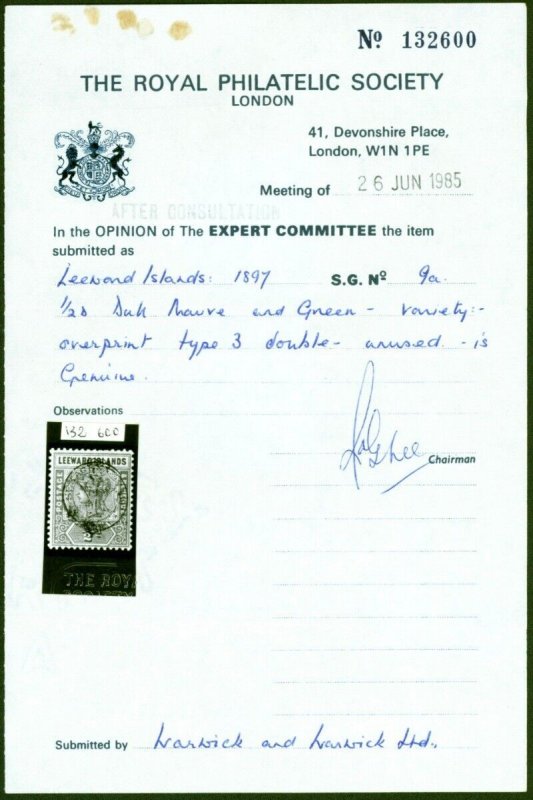 Nº 132600
THE ROYAL PHILATELIC SOCIETY
LONDON
41, Devonshire Place,
London, W1N 1PE
Meeting of 26 JUN 1985
AFTER CONSULTATION
In the OPINION of The EXPERT COMMITTEE the item
submitted as
Leeward Islands: 1897 S.G. Nº 9a.
1/2d Dull Mauve and Green - variety:-
overprint type 3 double - unused - is
Genuine.
Observations
132 600
LEEWARD ISLANDS
POSTAGE
THE ROYAL
SOCIETY
Chairman
Submitted by Warwick and Warwick Ltd.,